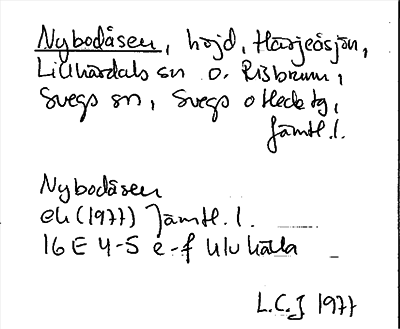 Nybodåsen, höjd, Härjeåsjön,
Lillhärdals sn o. Risbrunn,
Svegs sn, Svegs o Hede tg,
Jämtl. l.
Nybodåsen
ek (1977) Jämtl. l.
16 E 4-5 e-f Ulvkälla
L.C.J 1977